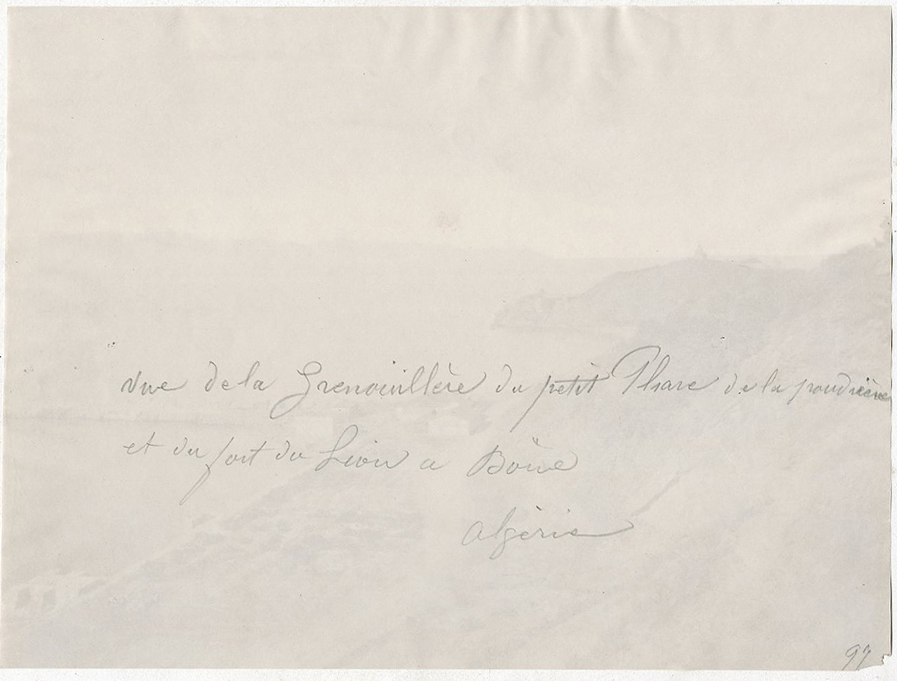 vue de la Grenouillère du petit Phare de la poudrière
et du fort du Lion a Bône
Algérie
97